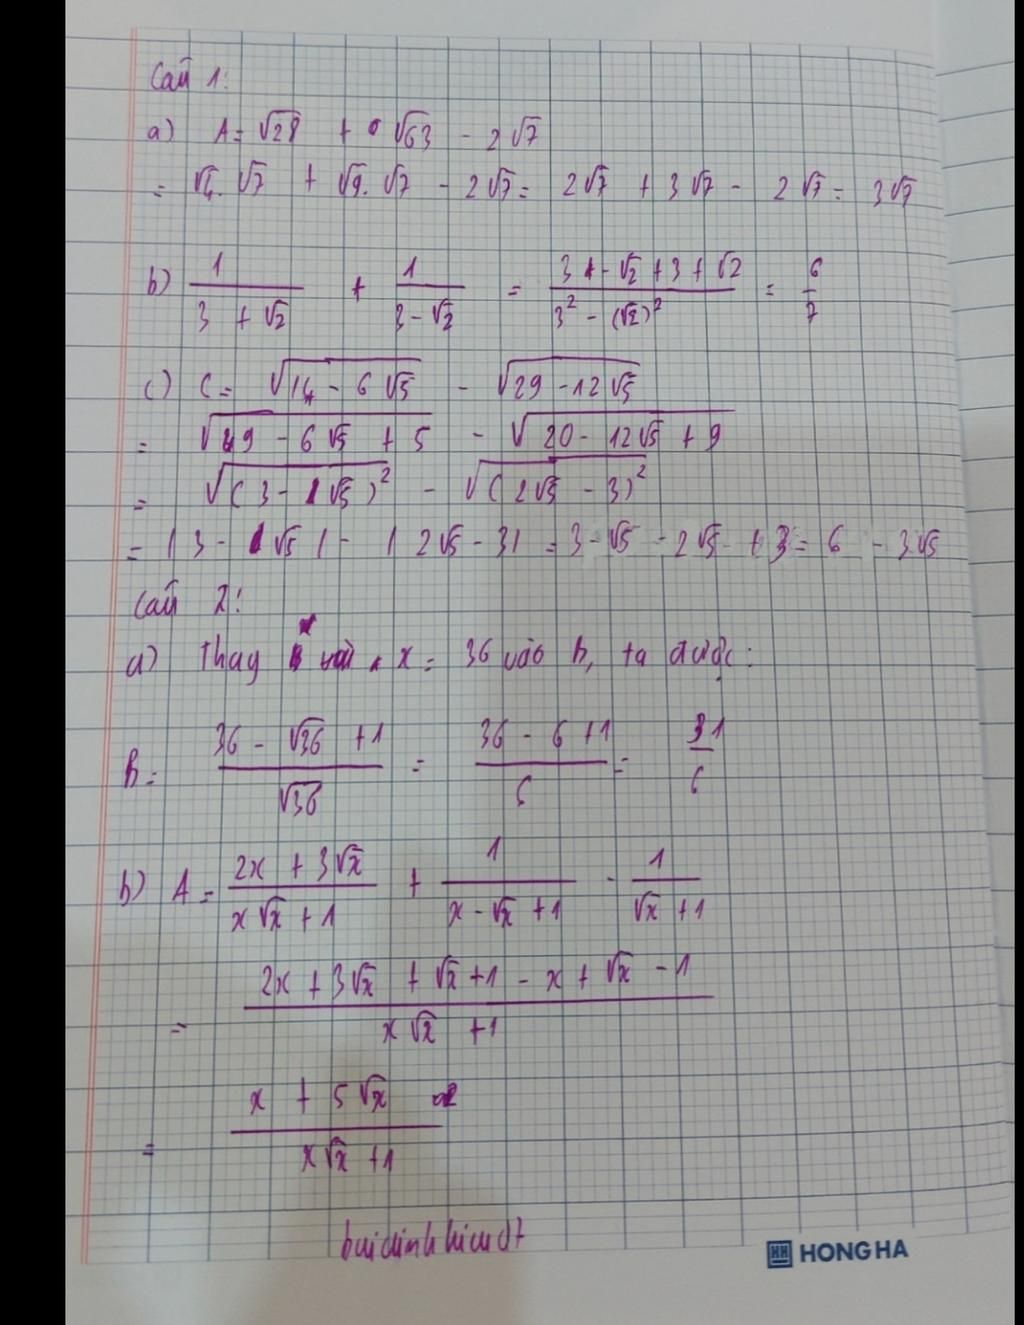 Câu 1:
a) A = √28 + √63 - 2√7
= √4.√7 + √9.√7 - 2√7 = 2√7 + 3√7 - 2√7 = 3√7
b) 1/(3 + √2) + 1/(3 - √2) = (3 - √2 + 3 + √2)/(3² - (√2)²) = 6/7
c) C = √(14 - 6√5) - √(29 - 12√5)
= √(9 - 6√5 + 5) - √(20 - 12√5 + 9)
= √((3 - √5)²) - √((2√5 - 3)²)
= |3 - √5| - |2√5 - 3| = 3 - √5 - 2√5 + 3 = 6 - 3√5
Câu 2:
a) Thay x = 36 vào B, ta được:
B = (36 - √36 + 1)/√36 = (36 - 6 + 1)/6 = 31/6
b) A = (2x + 3√x)/(x√x + 1) + 1/(x - √x + 1) - 1/(√x + 1)
= (2x + 3√x + √x + 1 - x + √x - 1)/(x√x + 1)
= (x + 5√x)/(x√x + 1)
HH HONG HA